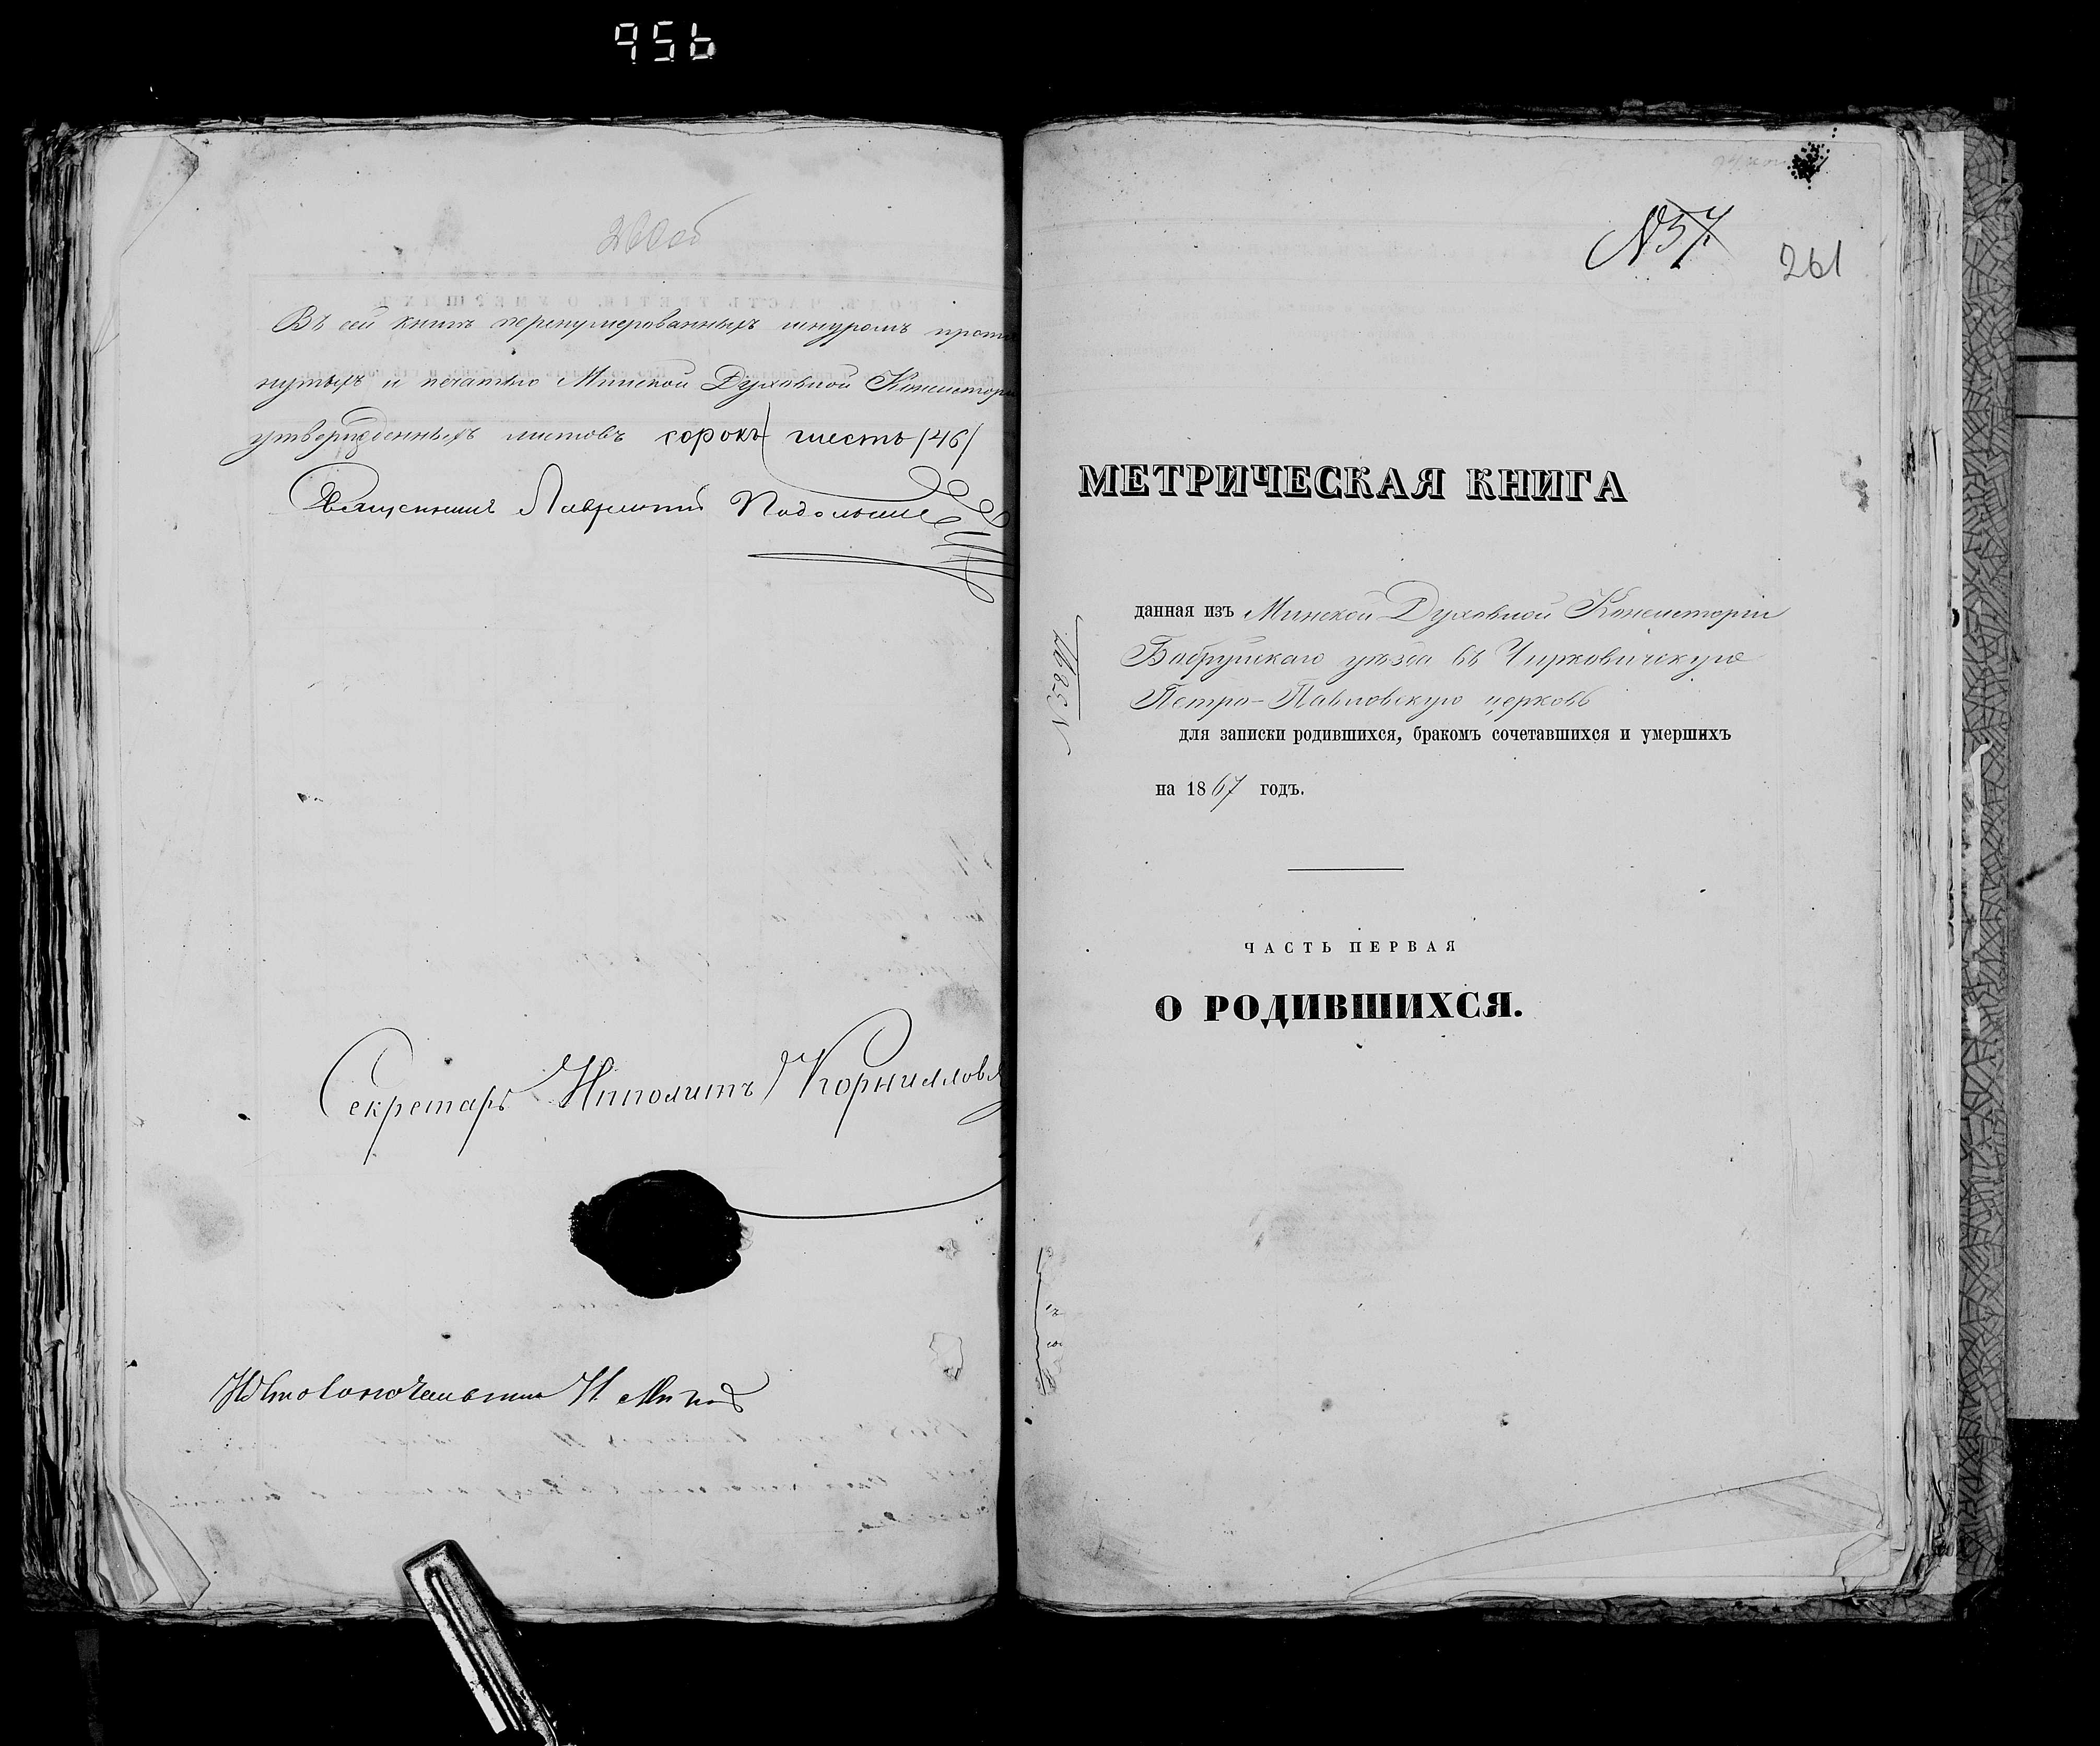 956
260об
Въ сей книгѣ перенумерованныхъ шнуромъ протя
нутыхъ и печатью Минской Духовной Консистори
утвержденныхъ листовъ сорокъ шесть /46/
Священникъ Лаврентій
Секретарь Ипполитъ Корнилло
Столоначальникъ И.
N57
261
МЕТРИЧЕСКАЯ КНИГА
данная изъ Минской Духовной Консисторіи
Бобруйскаго уѣзда въ Чирковичскую
Петро-Павловскую церковь
для записки родившихся, бракомъ сочетавшихся и умершихъ
на 1867 годъ.
ЧАСТЬ ПЕРВАЯ
О РОДИВШИХСЯ.